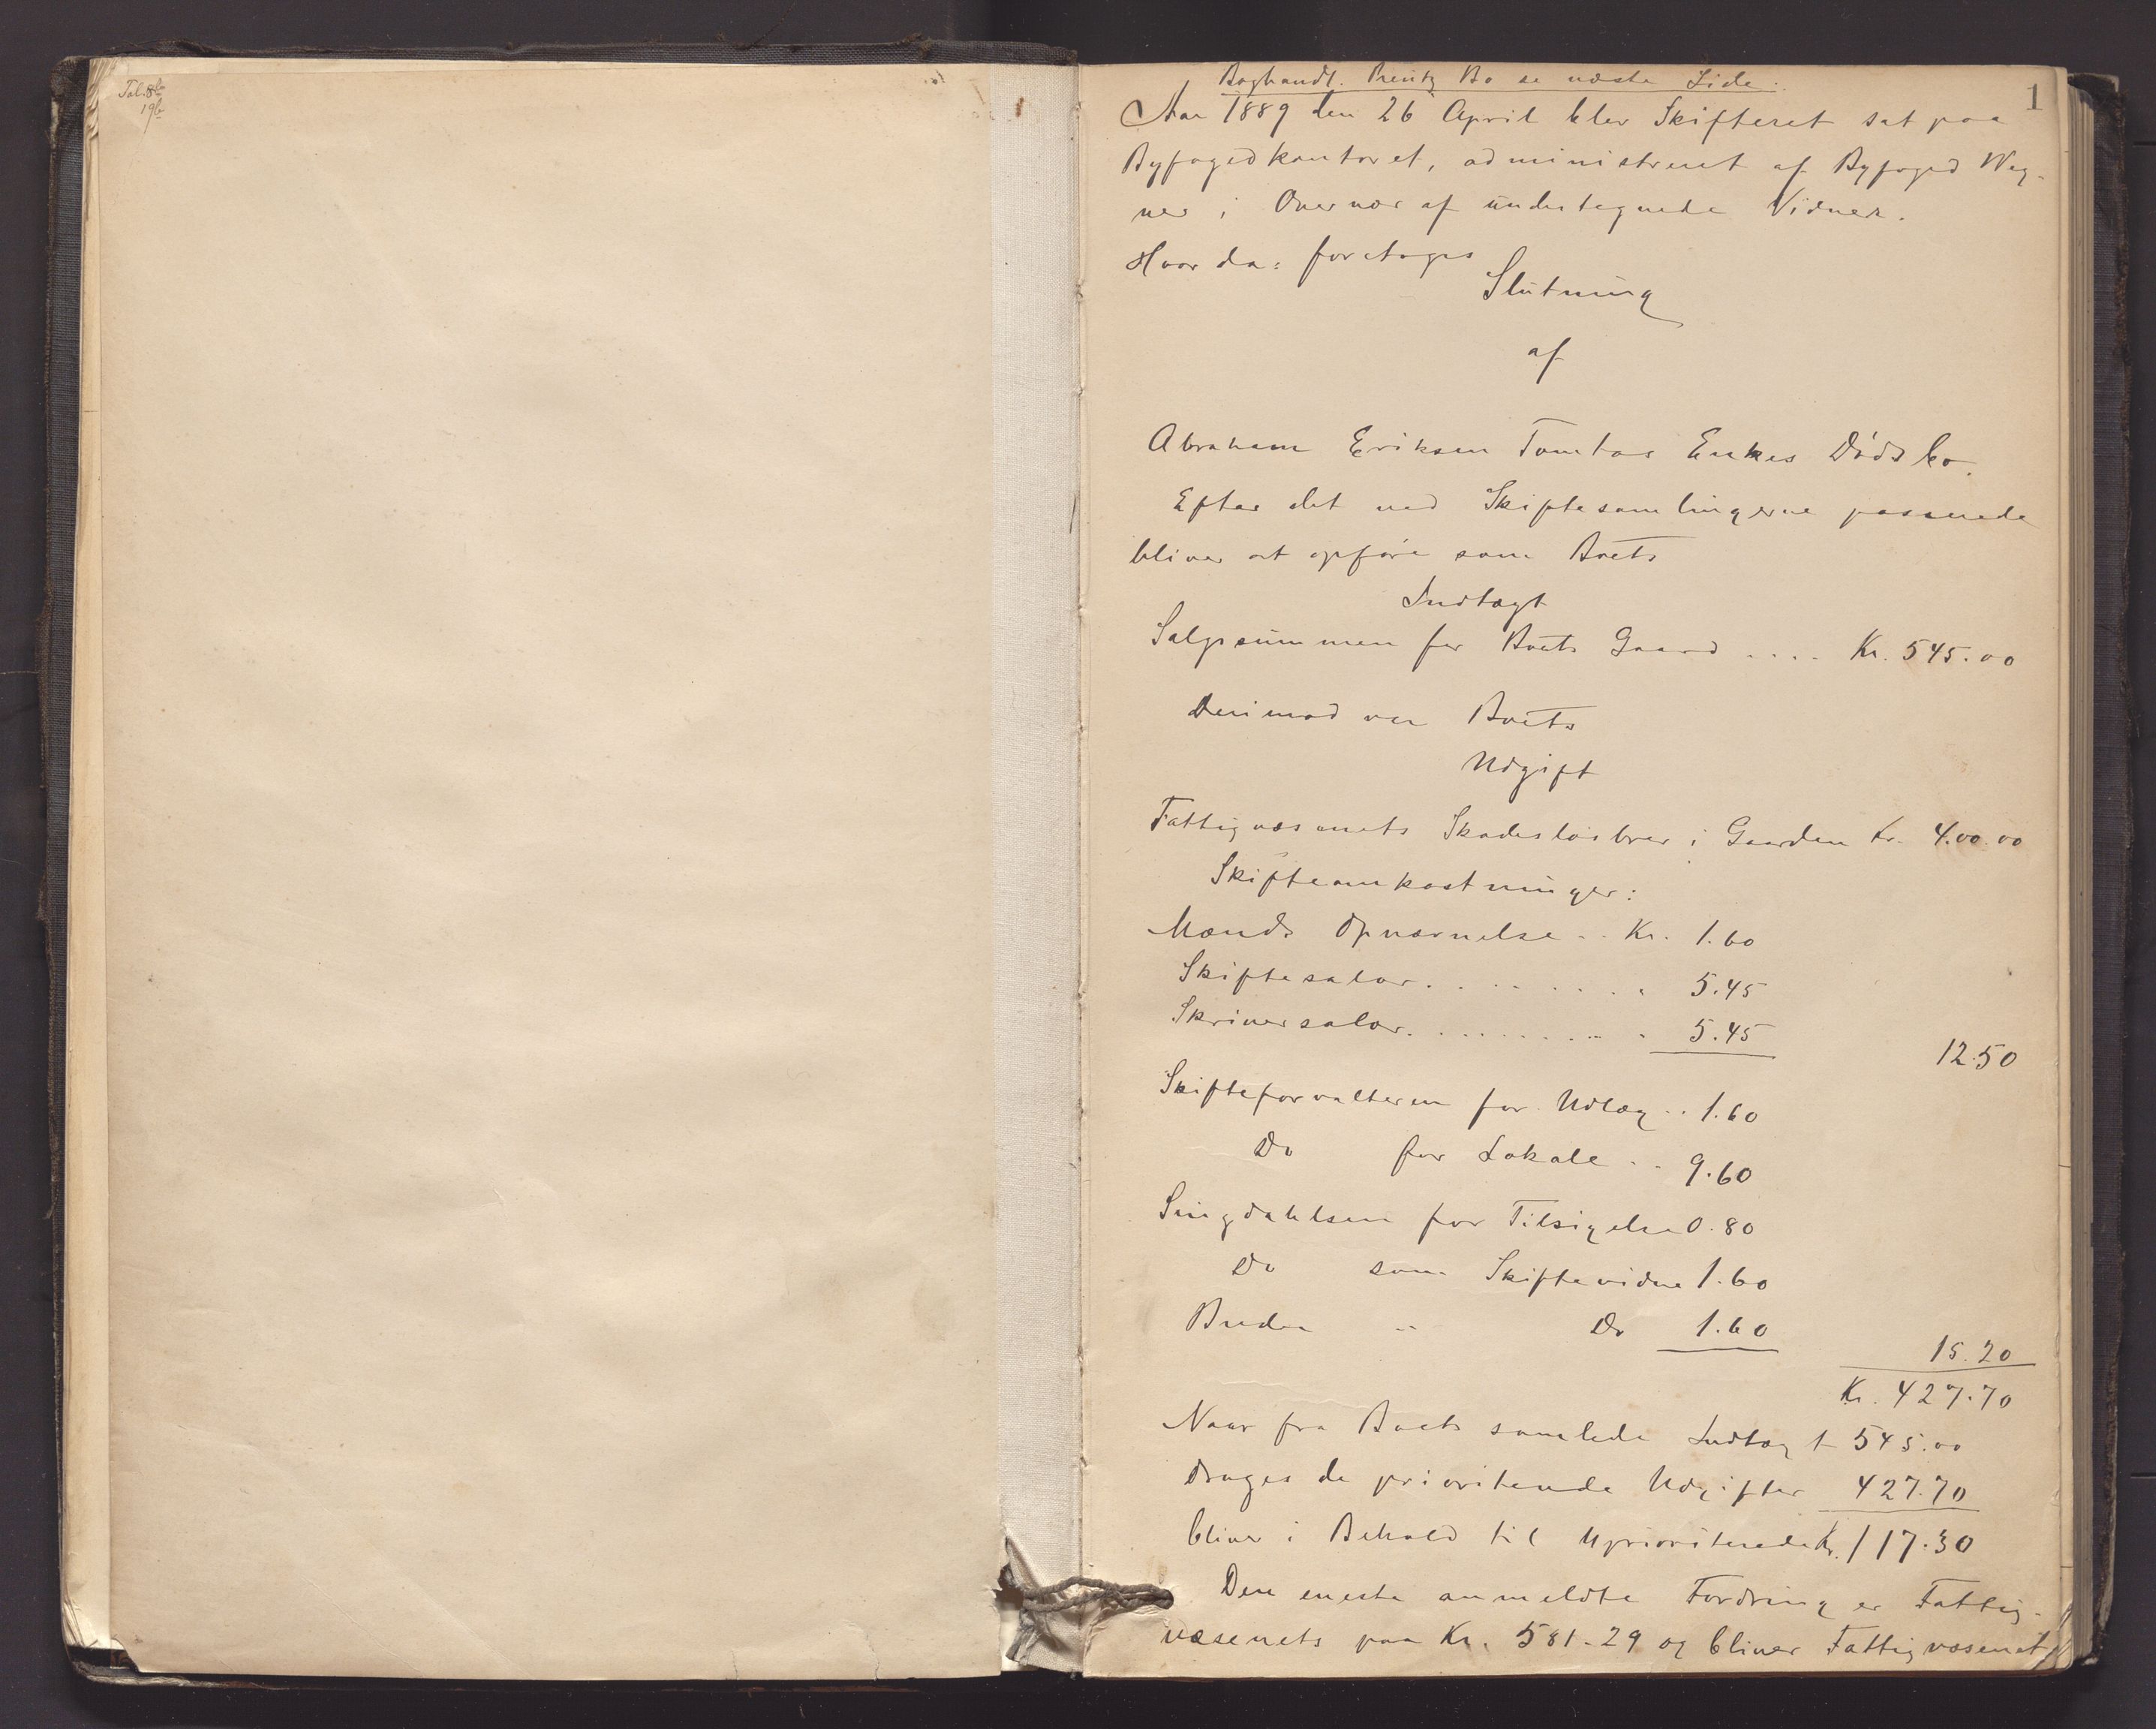 Tab. 8b
19b
1
Boghandl. Prentz Bo se næste Side:
Aar 1889 den 26 April blev Skifteret sat paa
Byfogedkontoret, administreret af Byfoged Weg-
ner i Overvær af undertegnede Vidner.
Hvor da: foretoges
Slutning
af
Abraham Eriksen Tomtas Enkes Dødsbo.
Efter det ved Skiftesamlingerne passerede
bliver at opføre som Boets
Indtægt
Salgssummen for Boets Gaard .... Kr. 545.00
Derimod var Boets
Udgift
Fattigvæsenets Skadesløsbrev i Gaarden Kr. 400.00
Skifteomkostninger:
Mænds Opnævnelse .. Kr. 1.60
Skiftesalær . . . . . . . . 5.45
Skriversalær . . . . . . . . 5.45
12.50
Skifteforvalteren for Udlæg .. 1.60
Do for Lokale .. 9.60
Singdahlsen for Tilsigelse 0.80
Do som Skiftevidne 1.60
Do 1.60
15.20
Kr. 427.70
Naar fra Boets samlede Indtægt 545.00
drages de prioriterede Udgifter 427.70
bliver i Behold til Uprioriterede Kr. 117.30
Den eneste anmeldte Fordring er Fattig-
væsenets paa Kr. 581.29 og bliver Fattigvæsenet